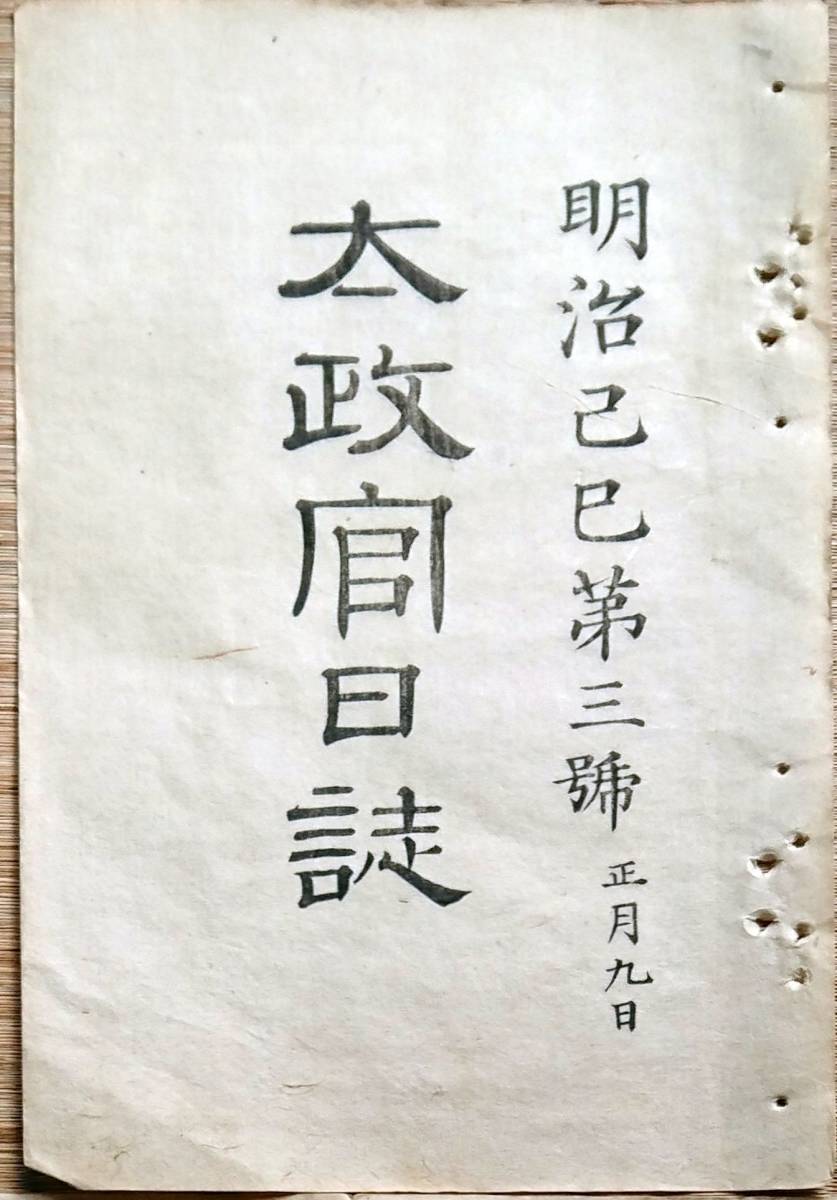 明治己巳第三號 正月九日
太政官日誌